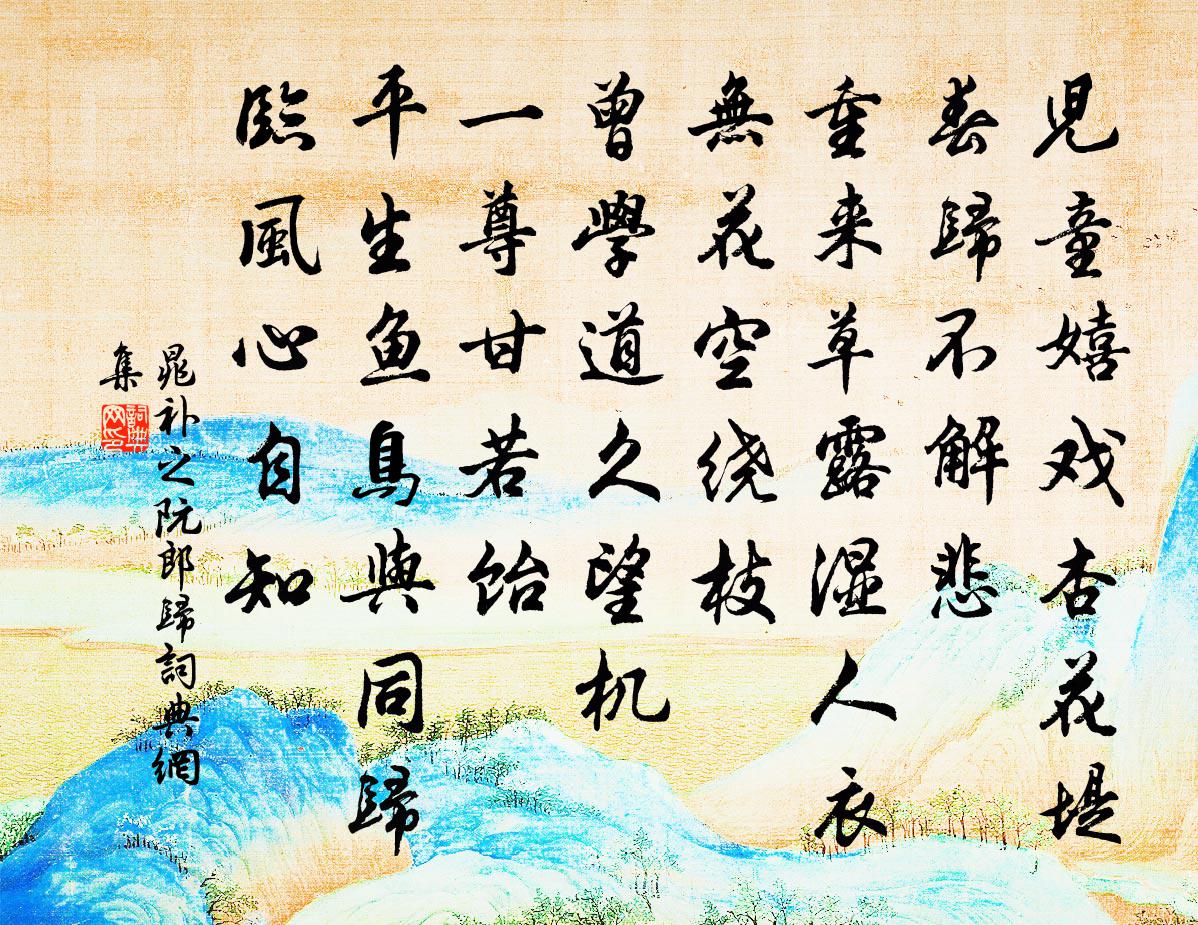 児童嬉戏杏花堤
春歸不解悲
重来草露湿人衣
無花空绕枝
曾學道久望机
一尊甘若饴
平生鱼鳥與同歸
臨風心自知
晁补之阮郎歸詞典網
集
詞典网印